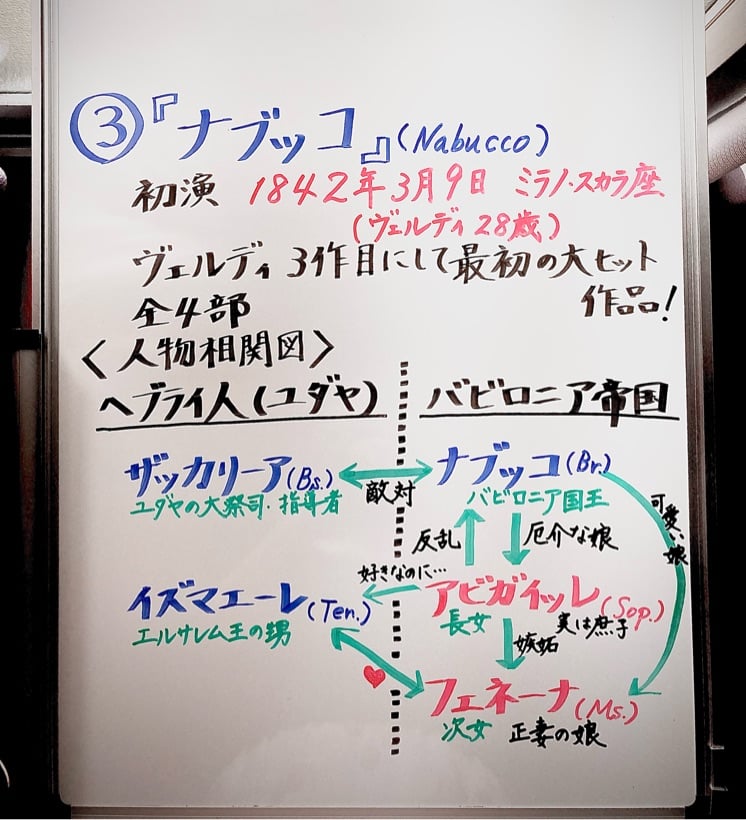 ③『ナブッコ』(Nabucco)
初演 1842年3月9日 ミラノ・スカラ座
(ヴェルディ 28歳)
ヴェルディ 3作目にして最初の大ヒット
作品!
全4部
<人物相関図>
ヘブライ人(ユダヤ) バビロニア帝国
ザッカリーア(Bs.) ナブッコ(Br.)
ユダヤの大祭司・指導者 敵対 バビロニア国王
可愛い娘
反乱 厄介な娘
好きなのに…
イズマエーレ(Ten.) アビガイッレ(Sop.)
エルサレム王の甥 長女 実は庶子
嫉妬
フェネーナ(Ms.)
次女 正妻の娘